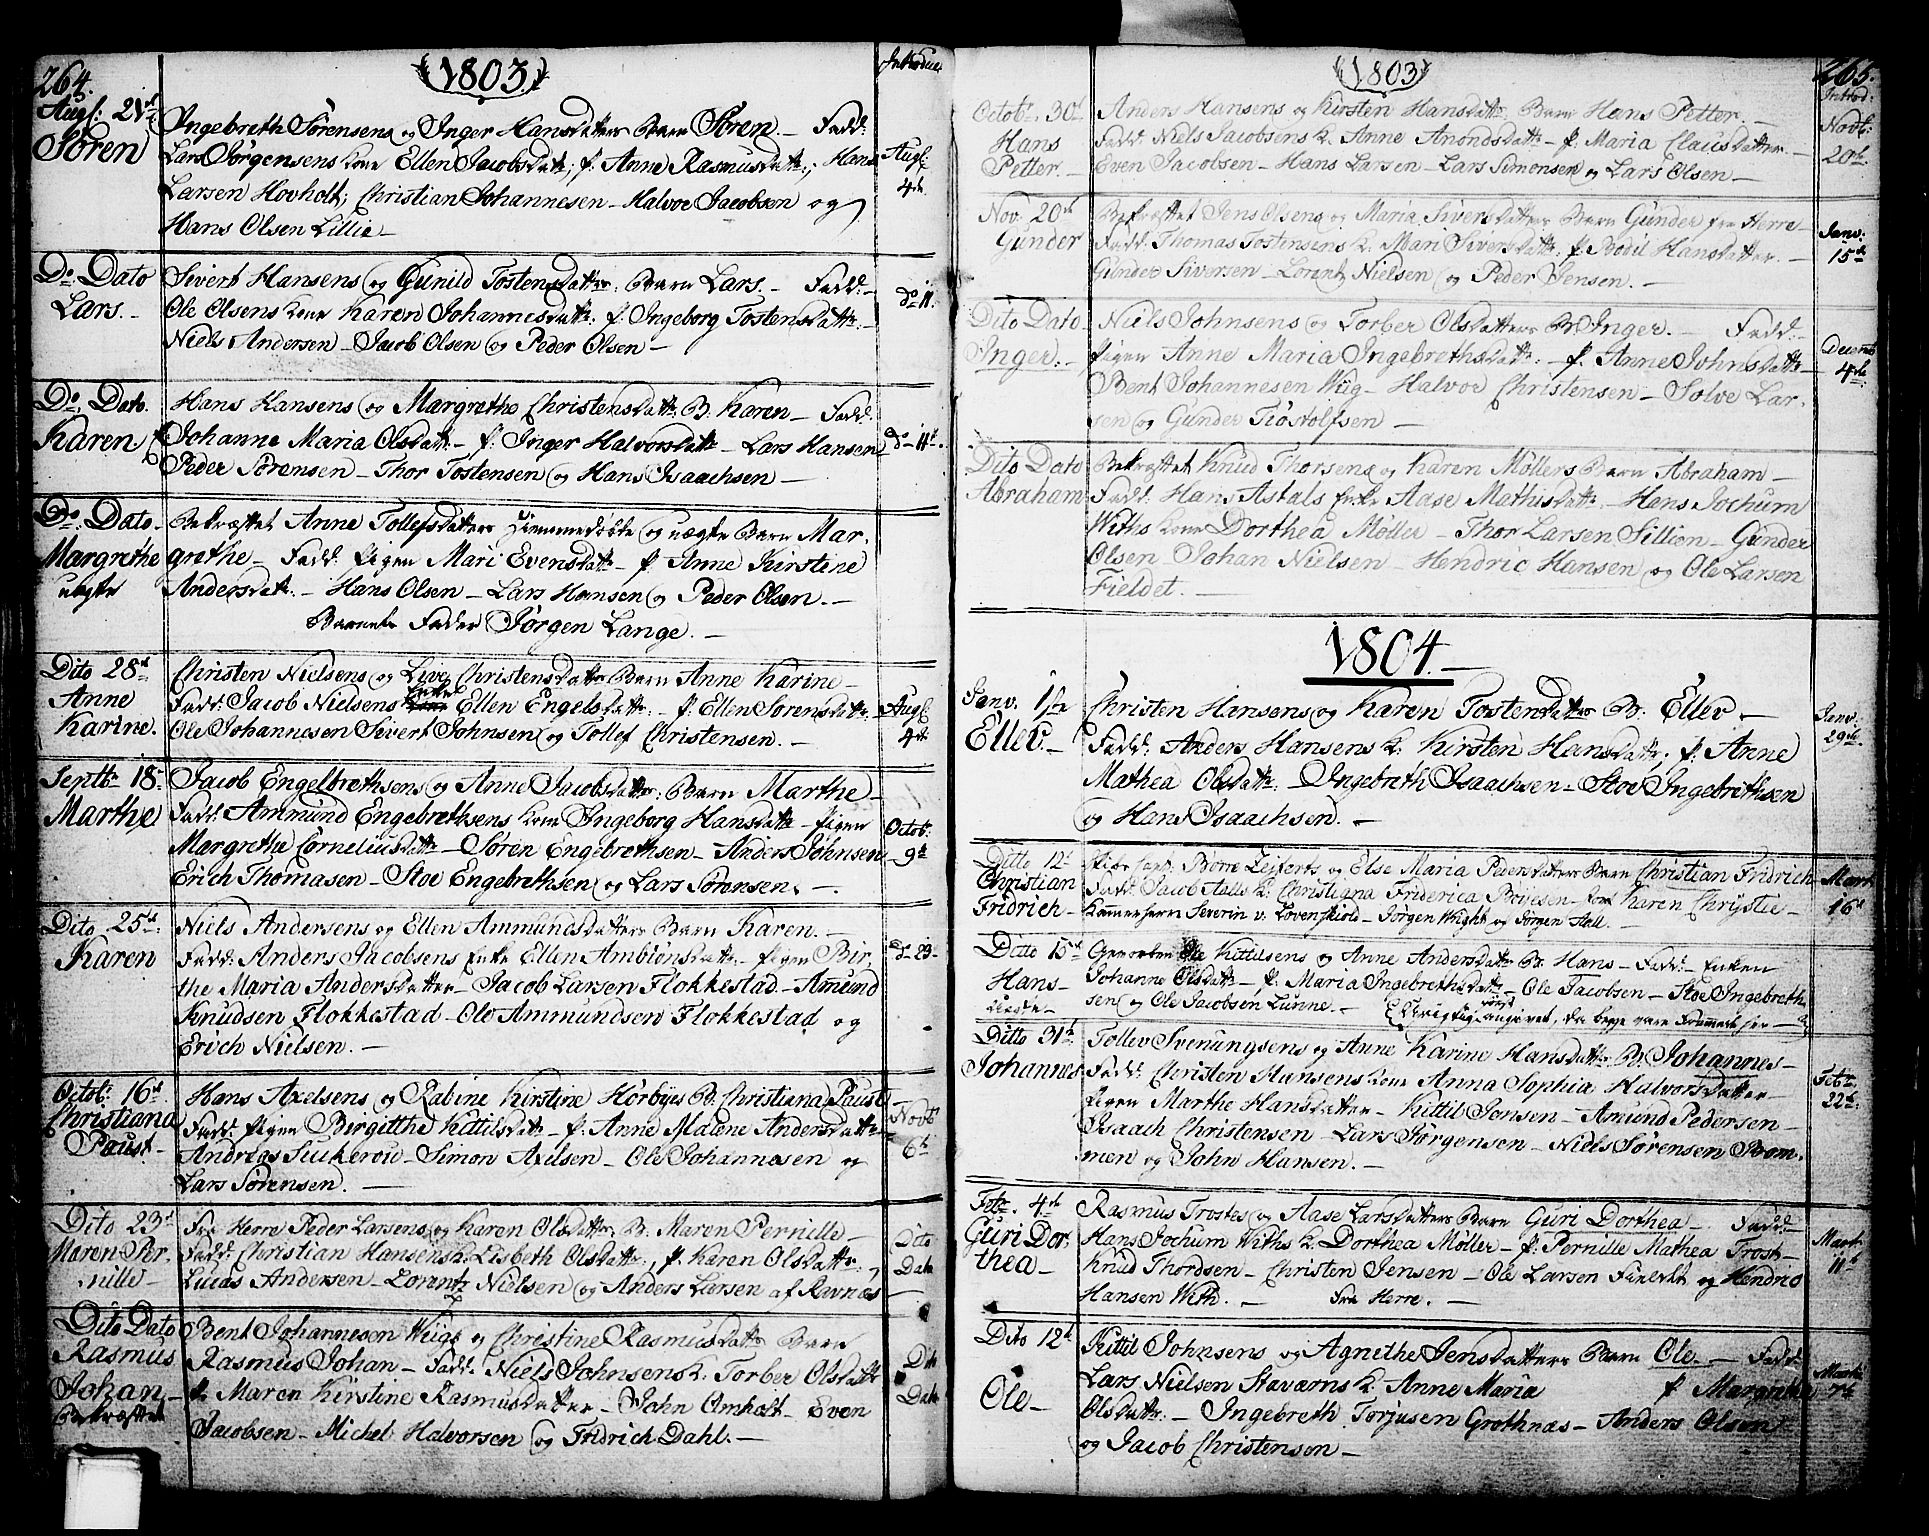 264.
1803
Introduc.
Augs: 21de
Sören
Ingebreth Sörensens og Inger Hansdatters Barn Sören. — Fadd:
Lars Jörgensens kone Ellen Jacobsdatt:, p: Anne Rasmusdatt:, Hans
Larsen Hovholt; Christian Johannesen — Halvor Jacobsen og
Hans Olsen Lillie —
Augs:
4de
Do Dato
Lars. —
Sivert Hansens og Gunild Tostensdatters Barn Lars. — Fadd: —
Ole Olsens kone Karen Johannesdatt: p: Ingeborg Tostensdatt: —
Niels Andersen — Jacob Olsen og Peder Olsen —
do 11.
Do Dato.
Karen.
Hans Hansens og Margrethe Christensdatt: B: Karen — Fadd:
p: Johanne Maria Olsdatt: — p: Inger Halvorsdatt: — Lars Hansen
Peder Sörensen — Thor Tostensen og Hans Isaachsen —
do 11te.
Do. Dato.
Margrethe
uægte
Bekræftet Anne Tollefsdatters hjemmedöbte og uægte Barn Mar-
grethe — Fadd: Pigen Mari Evensdatt: — p: Anne Kirstine
Andersdat: — Hans Olsen — Lars Hansen og Peder Olsen. —
Barnets Fader Jörgen Lange. —
Dito 28de
Anne
Karine.
Christen Nielsens og Live Christensdatt: Barn Anne Karine —
Fadd: Jacob Nielsens Enke Ellen Engelsdatt: — p: Ellen Sörensdatt:
Ole Johannesen Sivert Johnsen og Tollef Christensen. —
Augs:
4de
Septbr 18:
Marthe
Jacob Engelbrethsens og Anne Jacobsdatter: Barn Marthe —
Fadd: Ammund Engebrethsens kone Ingeborg Hansdatt: — Pigen
Margrethe Corneliusdatt: — Sören Engebrethsen — Anders Johnsen
Erich Thomasen — Stoe Engebrethsen og Lars Sörensen. —
Octob:
9de
Dito 25de
Karen
Niels Andersens og Ellen Ammundsdatters Barn Karen. —
Fadd: Anders Jacobsens Enke Ellen Ambiönsdatt: — Pigen Bir-
the Maria Andersdatter — Jacob Larsen Flokkestad — Amund
Knudsen Flokkestad — Ole Ammundsen Flokkestad og
Erich Nielsen. —
do 23.
Octob: 16de
Christiana
Paust —
Hans Axelsens og Rabine Kirstine Hörbyes B: Christiana Paust —
Fadd: Pigen Birgitthe Kittilsdatt: — p: Anne Malene Andersdatt:
Andreas — Simon Axelsen — Ole Johannesen og
Lars Sörensen. —
Novb:
6te
Dito 23de
Maren Per-
nille —
Fra Herre Peder Larsens og Karen Olsdatters B: Maren Pernille —
Fadd: Christian Hansens k: Lisbeth Olsdatt:, p: Karen Olsdatter:,
Lucas Andersen — Lorentz Nielsen og Anders Larsen af Ravnæs —
Dito
Dato
Dito Dato
Rasmus
Johan —
Bekræftet
Bent Johannesen Wiigs og Christine Rasmusdatt: Barn
Rasmus Johan — Fadd: Niels Johnsens k: Torber Olsdatt:
p: Maren Kirstine Rasmusdatter — John Omholt — Even
Jacobsen — Michel Halvorsen og Fridrich Dahl. —
Dito
Dato
1803
265.
Introd:
Octob: 30de
Hans
Petter. —
Anders Hansens og Kirsten Hansdatt: Barn Hans Petter. —
Fadd: Niels Jacobsens k: Anne Anondsdatt: — p: Maria Clausdatter. —
Even Jacobsen — Hans Larsen — Lars Simonsen og Lars Olsen —
Novb:
20de
Nov: 20de
Gunder
Bekræftet Jens Olsens og Maria Siversdatters Barn Gunder fra Herre —
Fadd: Thomas Tostensens k: Mari Siversdatt: p: Bodil Hansdatter. —
Gunder Siversen — Lorentz Nielsen og Peder Jensen. —
Janv:
15de
Dito Dato
Inger. —
Niels Johnsens og Torber Olsdatters B: Inger. — Fadd: —
Pigen Anne Maria Ingebrethsdatt: — p: Anne Johnsdatt: —
Bent Johannesen Wiig — Halvor Christensen — Solve Lar-
sen og Gunder Tiöstolfsen —
Decemb:
4de
Dito Dato
Abraham
Bekræftet Knud Thorsens og Karen Möllers Barn Abraham —
Fadd: Hans Astals Enke Aase Mathisdatt: — Hans Jochum
Withs kone Dorthea Möller — Thor Larsen Sillion — Gunder
Olsen — Johan Nielsen — Hendric Hansen og Ole Larsen
Fieldet. —
1804. —
Janv. 1ste
Ellev. —
Christen Hansens og Karen Tostensdatters B: Ellev. —
Fadd: Anders Hansens k: Kirsten Hansdatt:, p: Anne
Mathea Olsdatt: — Ingebreth Isaachsen — Stoe Ingebrethsen
og Hans Isaachsen. —
Janv:
29de
Ditto 12te
Christian
Fridrich —
Börre Zeiferts og Else Maria Pedersdatters Barn Christian Fridrich —
Fadd: Jacob Aalls k: Christiana Friderica Boijesen — Karen Chrystie —
Kammerherre Severin v. Lövenskiold — Jörgen Wright og Jörgen Aall. —
Mart:
16de
Ditto 15de
Hans —
Uægte —
Ole Kittilsens og Anne Andersdatt: B: Hans — Fadd: — Enken
Johanne Olsdatt: — p: Maria Ingebrethsdatt: — Ole Jacobsen — Stoe Ingebreth-
sen og Ole Jacobsen Lunne. — angivet, da begge vare
Ditto 31te
Johannes
Tollev Svenungsens og Anne Karine Hansdatt: B: Johannes —
Fadd: Christen Hansens kone Anna Sophia Halvorsdatter —
Pigen Marthe Hansdatter — Kittil Jonsen — Amund Pedersen —
Isaach Christensen — Lars Jörgensen — Niels Sörensen Bom-
men og John Hansen. —
Febr:
22de
Febr. 4de
Guri Dor-
thea —
Rasmus Trostes og Aase Larsdatters Barn Guri Dorthea — Fadd:
Hans Jochum Withs k: Dorthea Möller — p: Pernille Mathea Trost —
Knud Thordsen — Christen Jensen — Ole Larsen Fieldet og Hendric
Hansen With. — Fra Herre. —
Mart:
11te
Dito 12te
Ole —
Kittil Johnsens og Agnethe Jensdatters Barn Ole. — Fadd:
Lars Nielsen Stavarns k: Anne Maria p: Margrethe
Olsdatt: — Ingebreth Torjusen Grothnæs — Anders Olsen
og Jacob Christensen —
Martii
7de